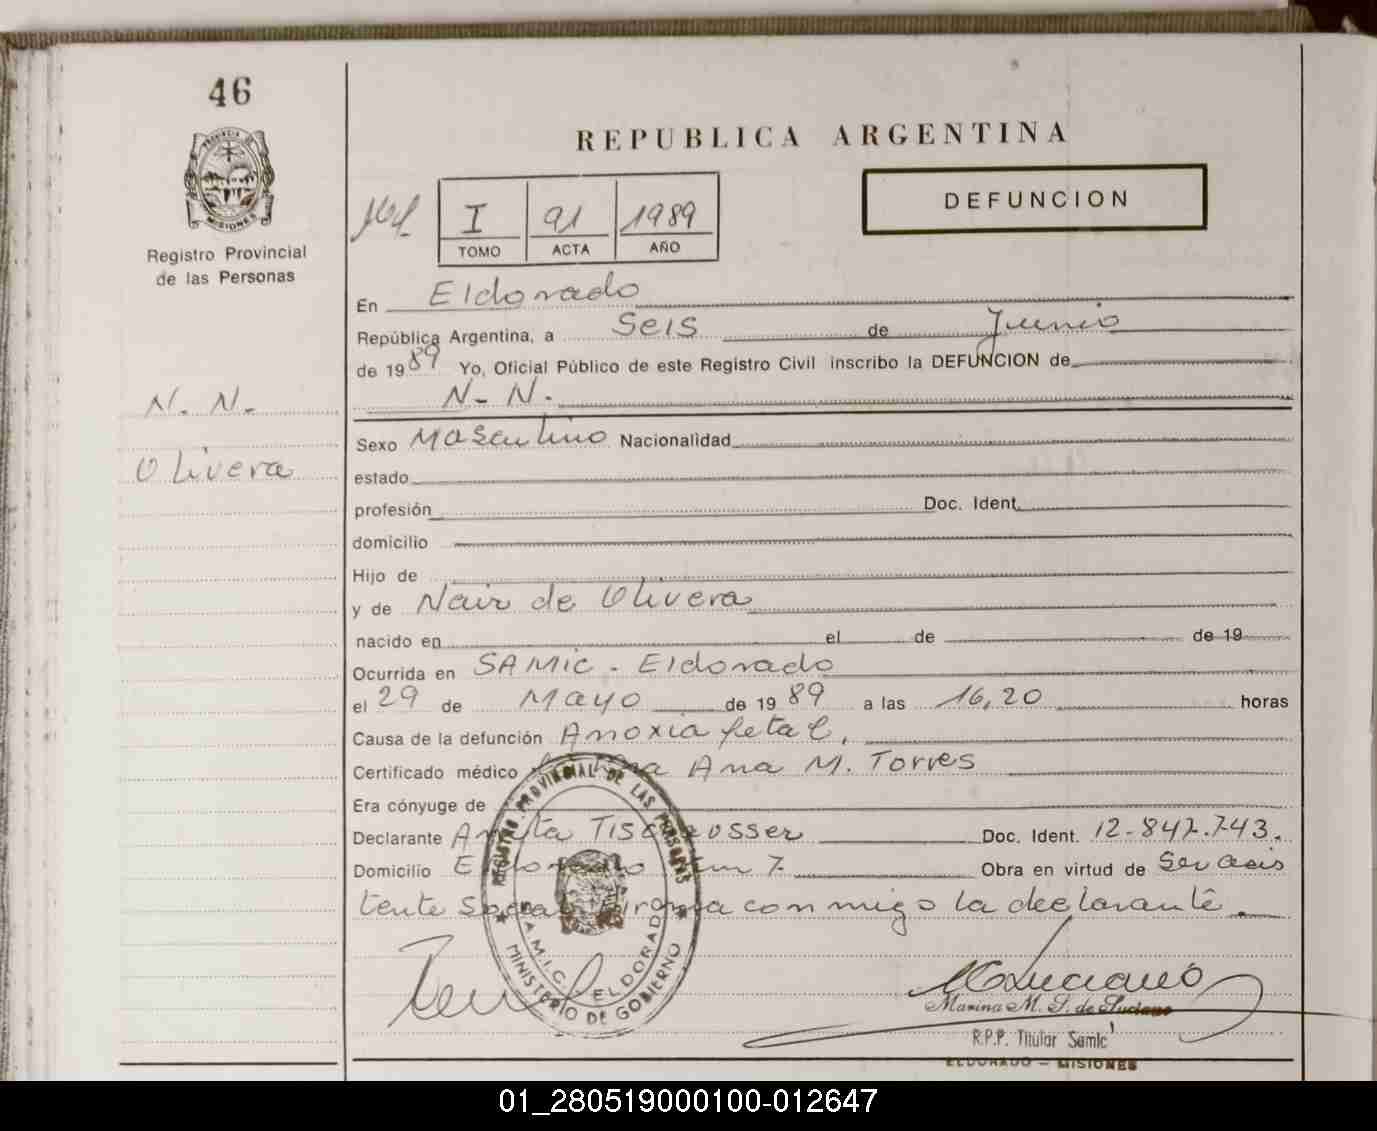 46
PROVINCIA DE
MISIONES
Registro Provincial
de las Personas
REPUBLICA ARGENTINA
DEFUNCION
I 91 1989
TOMO ACTA AÑO
En Eldorado
República Argentina, a Seis de Junio
de 1989 Yo, Oficial Público de este Registro Civil inscribo la DEFUNCION de
N. N.
N. N.
Olivera
Sexo Masculino Nacionalidad
estado
profesión Doc. Ident.
domicilio
Hijo de
y de Nair de Olivera
nacido en el de de 19
Ocurrida en SAMIC - Eldorado
el 29 de Mayo de 1989 a las 16,20 horas
Causa de la defunción Anoxia fetal.
Certificado médico Ana M. Torres
Era cónyuge de
Declarante Anita Doc. Ident. 12-847.743.
Domicilio Eldorado Km 7. Obra en virtud de Ser asis
tente Social Firma conmigo la declarante
REGISTRO PROVINCIAL DE LAS PERSONAS
S.A.M.I.C. ELDORADO
MINISTERIO DE GOBIERNO
Marina M. S. de Luciano
R.P.P. Titular Samic
ELDORADO - MISIONES
01_280519000100-012647